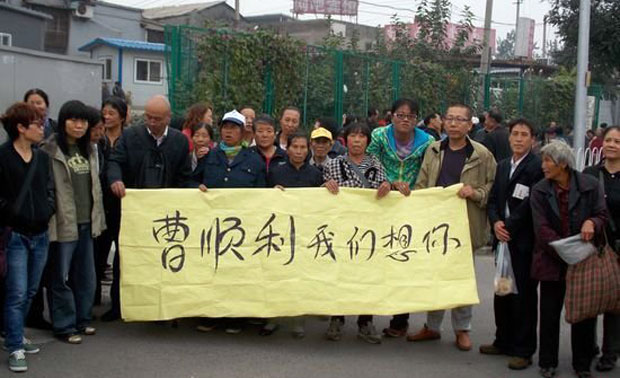 曹顺利我们想你